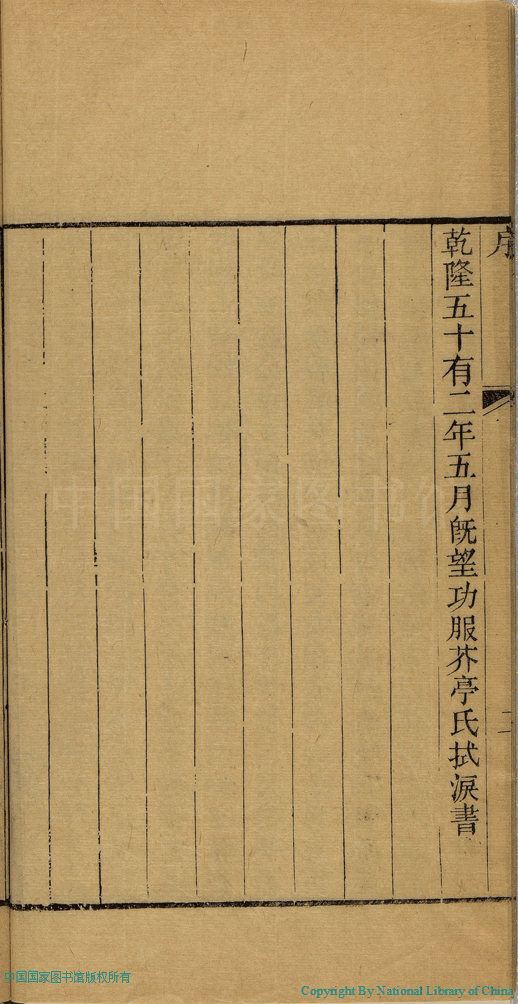 序
二
乾隆五十有二年五月既望功服芥亭氏拭淚書
中国国家图书馆
中国国家图书馆版权所有
Copyright By National Library of China